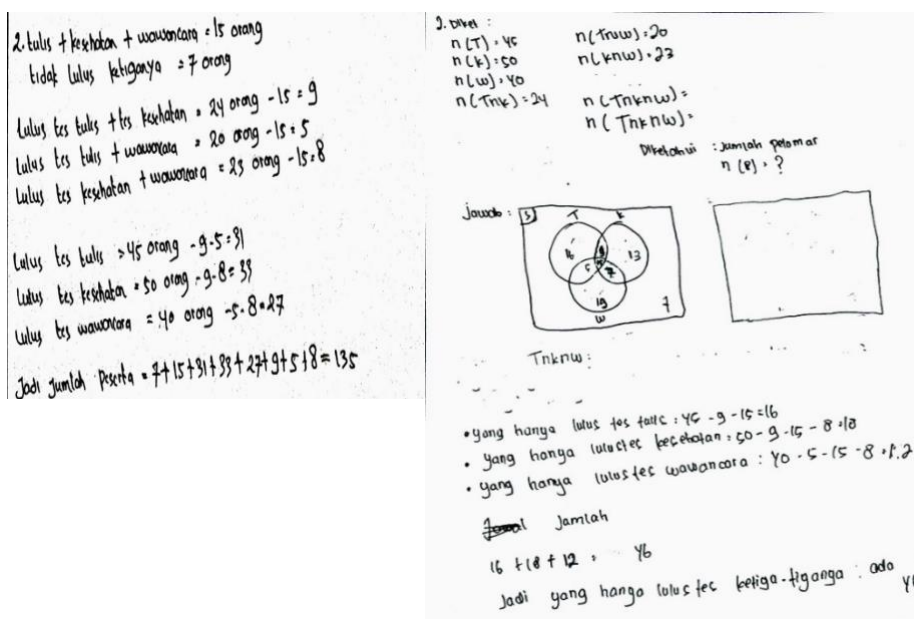 2. tulis + kesehatan + wawancara = 15 orang
tidak lulus ketiganya = 7 orang
Lulus tes tulis + tes kesehatan = 24 orang - 15 = 9
Lulus tes tulis + wawancara = 20 orang - 15 = 5
Lulus tes kesehatan + wawancara = 23 orang - 15 = 8
Lulus tes tulis = 45 orang - 9 - 5 = 31
Lulus tes kesehatan = 50 orang - 9 - 8 = 33
Lulus tes wawancara = 40 orang - 5 - 8 = 27
Jadi Jumlah Peserta = 7 + 15 + 31 + 33 + 27 + 9 + 5 + 8 = 135
2. Diket :
n(T) = 45
n(TnW) = 20
n(K) = 50
n(KnW) = 23
n(W) = 40
n(TnK) = 24
n(TnKnW) =
n(TnKnW) =
Diketahui : Jumlah pelamar
n(8) = ?
Jawab :
S
T K
16 9 13
5 15 7
19
W
7
TnKnW :
• yang hanya lulus tes tulis : 45 - 9 - 15 = 16
• yang hanya lulus tes kesehatan : 50 - 9 - 15 - 8 = 18
• yang hanya lulus tes wawancara : 40 - 5 - 15 - 8 = 12
Jumlah
16 + 18 + 12 = 46
Jadi yang hanya lulus tes ketiga-tiganya : ada